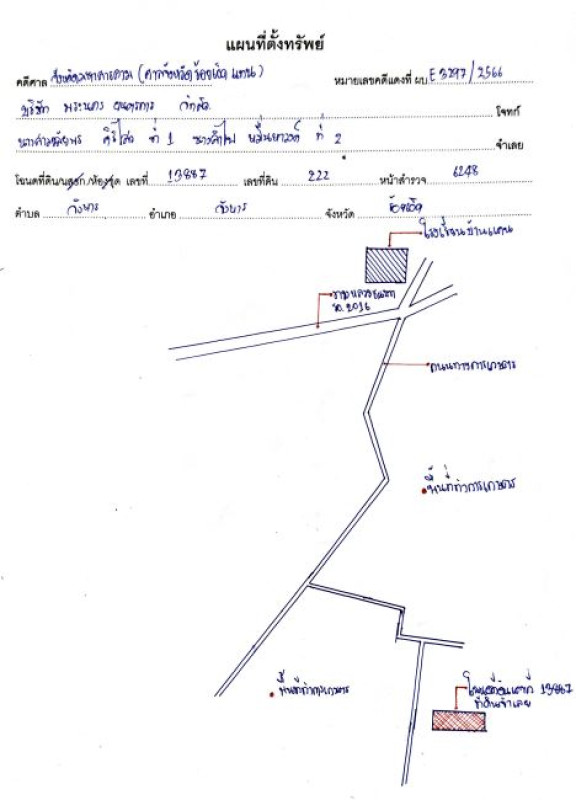 แผนที่ตั้งทรัพย์
คดีศาล จังหวัดมหาสารคาม (ศาลจังหวัดร้อยเอ็ด แทน) หมายเลขคดีแดงที่ ผบ E 3297/2566
บริษัท พระนคร ยนตรการ จำกัด โจทก์
ที่ 1 ที่ 2 จำเลย
โฉนดที่ดิน/น.ส.3ก./ห้องชุด เลขที่ 13887 เลขที่ดิน 222 หน้าสำรวจ 6248
ตำบล วังหาร อำเภอ จังหวัด ร้อยเอ็ด
โรงเรียนบ้าน
ทางหลวงชนบท
รอ.2016
ถนนทางการเกษตร
พื้นที่ทำการเกษตร
พื้นที่ทำการเกษตร
โฉนดที่ดินเลขที่ 13887
ที่ดินจำเลย